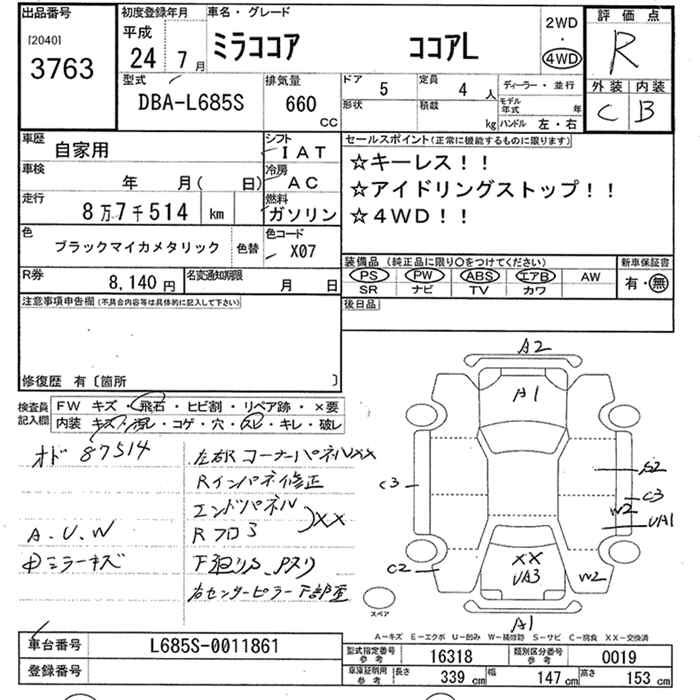 出品番号
[2040]
3763
初度登録年月
平成
24 7月
車名・グレード
ミラココア ココアL
2WD
・
4WD
評価点
R
外装 内装
C B
型式
DBA-L685S
排気量
660
CC
ドア 5
定員 4 人
形状
積載 kg
ディーラー・並行
モデル年式 年
ハンドル 左・右
車歴
自家用
シフト
IAT
車検
年 月( 日)
冷房
AC
走行
8万7千514 km
燃料
ガソリン
色
ブラックマイカメタリック
色替
色コード
X07
R券
8,140円
名変通知期限
月 日
セールスポイント(正常に機能するものに限ります)
☆キーレス!!
☆アイドリングストップ!!
☆4WD!!
装備品(純正品に限り○をつけてください)
PS PW ABS エアB AW
SR ナビ TV カワ
新車保証書
有・無
後日品
注意事項申告欄(不具合内容等は具体的に記入して下さい)
修復歴 有〔箇所 〕
検査員
記入欄
FW キズ・飛石・ヒビ割・リペア跡・×要
内装 キズ・汚レ・コゲ・穴・スレ・キレ・破レ
オド 87514
A.U.W
ミラーキズ
左右R コーナーパネルXX
Rインパネ修正
エンドパネル
Rフロ XX
下廻りS, Pスリ
右センターピラー下部
A2
A1
C3
S2
C3
W2
UA1
C2
XX
UA3
W2
A1
スペア
A-キズ E-エクボ U-凹み W-補修跡 S-サビ C-腐食 XX-交換済
車台番号
L685S-0011861
登録番号
型式指定番号
参考
16318
類別区分番号
参考
0019
車庫証明用
参考
長さ 339 cm
幅 147 cm
高さ 153 cm